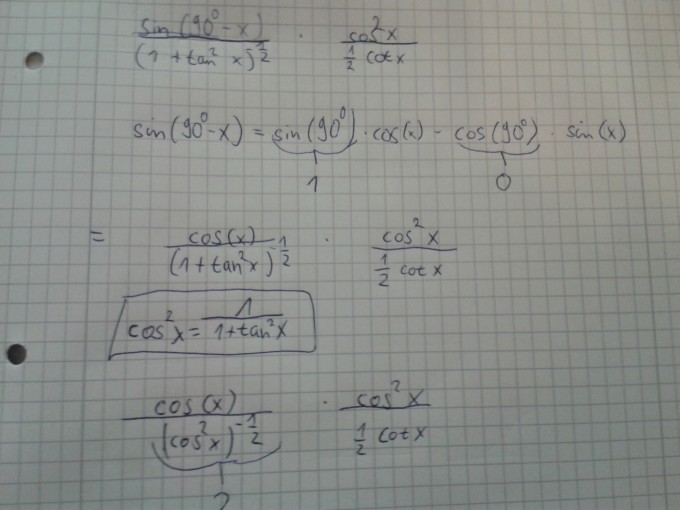 sin(90⁰-x) / (1+tan²x)^-1/2 · cos²x / 1/2 cotx
sin(90⁰-x) = sin(90⁰)·cos(x) - cos(90⁰)·sin(x)
1 0
= cos(x) / (1+tan²x)^-1/2 · cos²x / 1/2 cotx
cos²x = 1 / 1+tan²x
cos(x) / (cos²x)^-1/2 · cos²x / 1/2 cotx
?